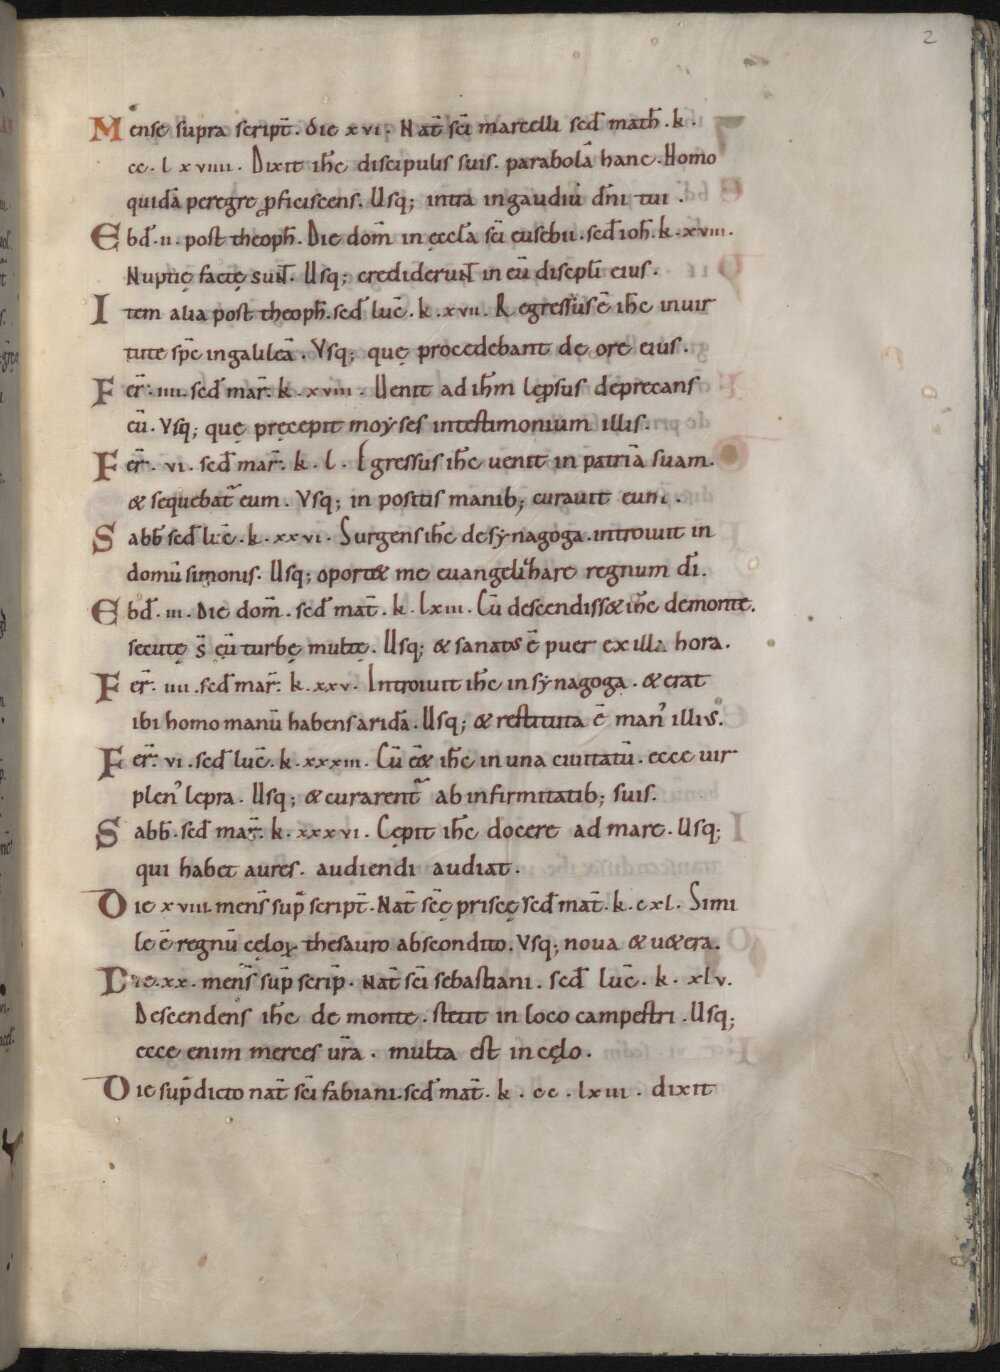 2
Mense supra script̄. die xvi. Nat̄ sc̄i marcelli scd̄ math̄. k.
cc. lxviiii. Dixit ih̄c discipulis suis. parabolā hanc. Homo
quidā peregre ꝓficiscens. Usq; intra ingaudiū dn̄i tui.
Ebd̄. ii. post theoph̄. Die dom̄ in ęccl̄a sc̄i eusebii. scd̄ ioh̄. k. xviii.
Nuptię factę sunt̄. Usq; crediderunt in eū discipl̄i eius.
Item alia post theoph̄. scd̄ luc̄. k. xvii. Regressus ē ih̄c inuir
tute sp̄c ingalileā. Vsq; quę procedebant de ore eius.
Fer̄. iiii. scd̄ mar̄. k. xviii. Uenit ad ih̄m lęprsus deprecans
eū. Vsq; quę pręcepit moẏses intestimonium illis.
Fer̄. vi. scd̄ mar̄. k. l. Egressus ih̄c uenit in patriā suam.
& sequebat̄ eum. Vsq; in positis manib; curauit eum.
Sabb̄ scd̄ luc̄. k. xxvi. Surgens ih̄c de sẏnagoga. introiuit in
domū simonis. Usq; oport& me euangelizare regnum dī.
Ebd̄. iii. Die dom̄. scd̄ mat̄. k. lxiii. Cū descendiss& ih̄c demonte.
secutę s̄ eū turbę multę. Usq; & sanatus ē puer ex illa hora.
Fer̄. iiii. scd̄ mar̄. k. xxv. Introiuit ih̄c in sẏnagoga. & erat
ibi homo manū habens aridā. Usq; & restituta ē man' illius.
Fer̄. vi. scd̄ luc̄. k. xxxiii. Cū e̅& ih̄c in una ciuitatū. ecce uir
plen' lepra. Usq; & curarent̄ ab infirmitatib; suis.
Sabb̄. scd̄ mar̄. k. xxxvi. Cępit ih̄c docere ad mare. Usq;
qui habet aures. audiendi audiat.
Die xviii mens̄ sup̄ script̄. Nat̄ sc̄ę priscę scd̄ mat̄. k. cxl. Simi
le ē regnū cęloꝝ thesauro abscondito. Vsq; noua & u&era.
Die. xx. mens̄ sup̄ scrip̄. Nat̄ sc̄i sebastiani. scd̄ luc̄. k. xlv.
Descendens ih̄c de monte. stetit in loco campestri. Usq;
ecce enim merces ur̄a. multa est in cęlo.
Die sup̄dicto nat̄ sc̄i fabiani. scd̄ mat̄. k. cc. lxiii. dixit